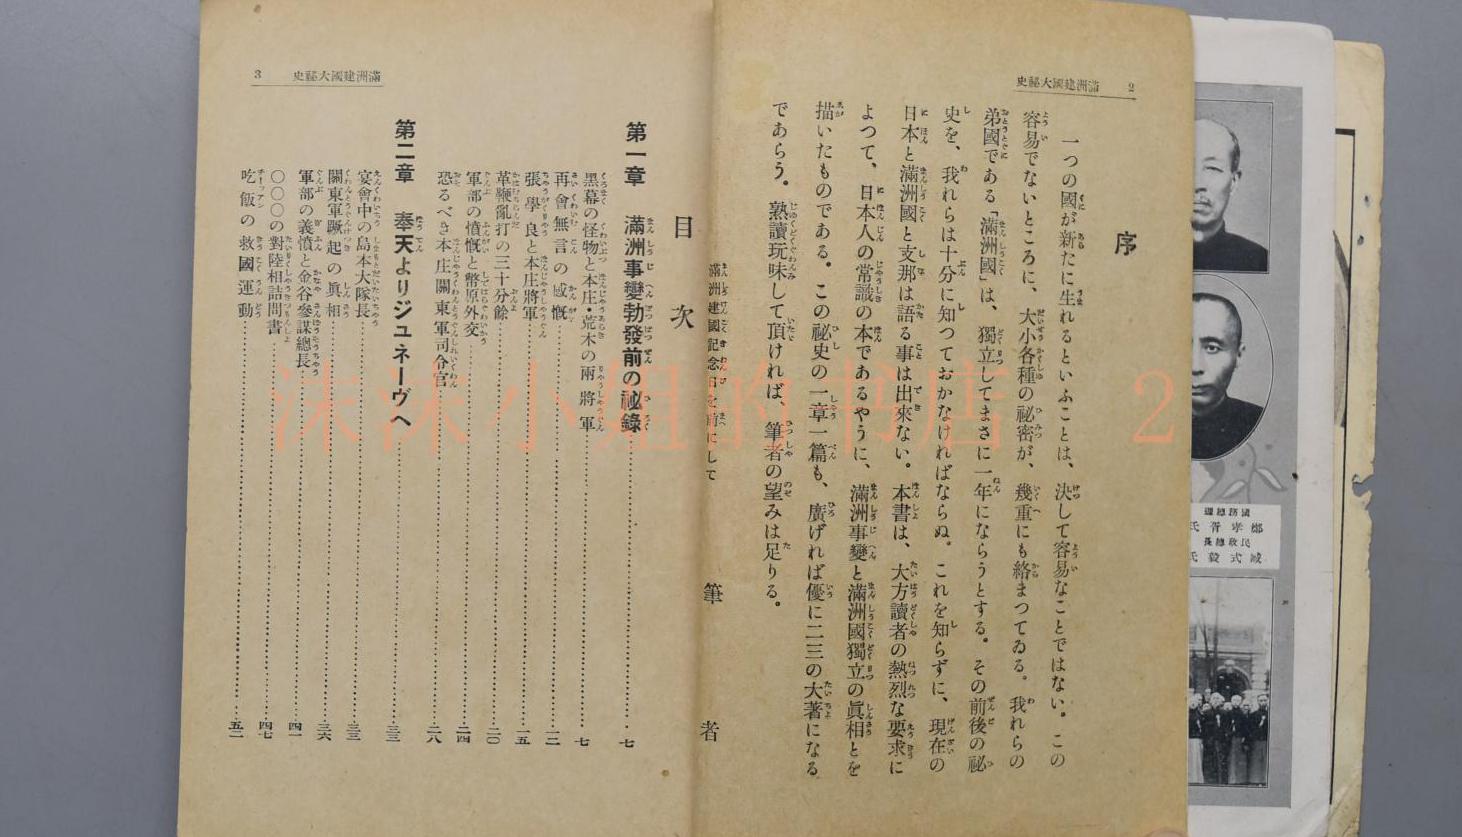 2 滿洲建國大祕史
序
一つの國が新たに生れるといふことは、決して容易なことではない。この
容易でないところに、大小各種の祕密が、幾重にも絡まつてゐる。我れらの
弟國である「滿洲國」は、獨立してまさに一年にならうとする。その前後の祕
史を、我れらは十分に知つておかなければならぬ。これを知らずに、現在の
日本と滿洲國と支那は語る事は出來ない。本書は、大方讀者の熱烈な要求に
よつて、日本人の常識の本であるやうに、滿洲事變と滿洲國獨立の眞相とを
描いたものである。この祕史の一章一篇も、廣げれば優に二三の大著になる
であらう。熟讀玩味して頂ければ、筆者の望みは足りる。
滿洲建國記念日を前にして
筆者
滿洲建國大祕史 3
目次
第一章 滿洲事變勃發前の祕錄……七
黑幕の怪物と本庄・荒木の兩將軍……七
再會無言の感慨……一二
張學良と本庄將軍……一五
革鞭亂打の三十分餘……二〇
軍部の憤慨と幣原外交……二四
恐るべき本庄關東軍司令官……二八
第二章 奉天よりジュネーヴへ……三三
宴會中の島本大隊長……三三
關東軍蹶起の眞相……三六
軍部の義憤と金谷參謀總長……四一
〇〇〇の對陸相詰問書……四七
吃飯の救國運動……五二
國務總理
鄭孝胥氏
民政總長
臧式毅氏
沫沫小姐的书店 2